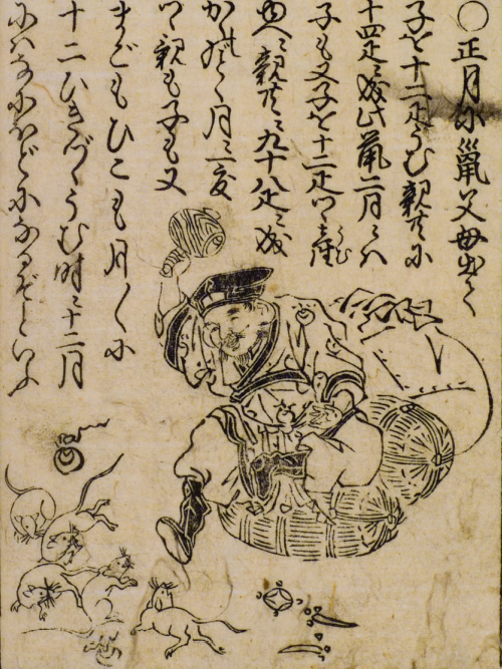 ○正月に鼠父母出て
子を十二疋うむ親共に
十四疋ニ成此鼠二月ニハ
子も又子を十二疋ツヽ産
うむ
ニ親共ニ九十八疋ニ成
かくのごとく月ニ一度
ツヽ親も子も又
まごもひこも月〳〵に
十二ひきづゝうむ時ニ十二月
にはなにほどになるぞといふ